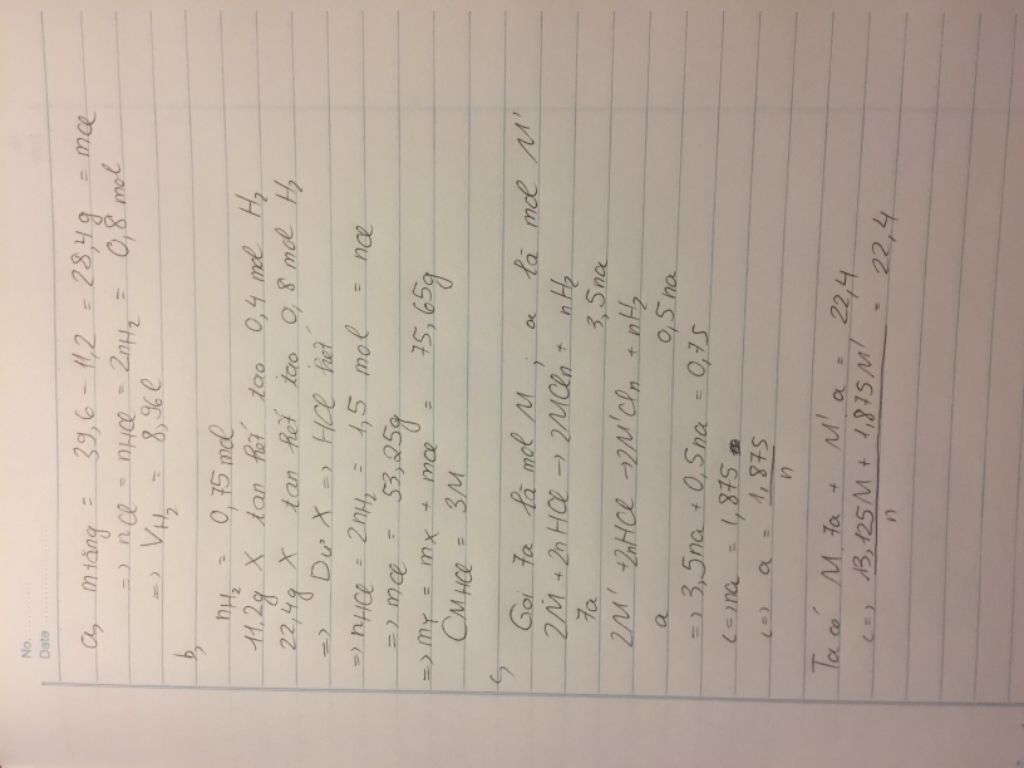 No. ............
Date ............
a, m tăng = 39,6 - 11,2 = 28,4g = mCl
=> nCl = nHCl = 2nH₂ = 0,8 mol
=> VH₂ = 8,96l
b,
nH₂ = 0,75 mol
11,2g X tan hết tạo 0,4 mol H₂
22,4g X tan hết tạo 0,8 mol H₂
=> Dư X => HCl hết
=> nHCl = 2nH₂ = 1,5 mol = nCl
=> mCl = 53,25g
=> mY = mX + mCl = 75,65g
CMHCl = 3M
c, Gọi 7a là mol M, a là mol M'
2M + 2nHCl -> 2MCln + nH₂
7a 3,5na
2M' + 2nHCl -> 2M'Cln + nH₂
a 0,5na
=> 3,5na + 0,5na = 0,75
<=> na = 1,875
<=> a = 1,875/n
Ta có M.7a + M'a = 22,4
<=> (13,125M + 1,875M')/n = 22,4